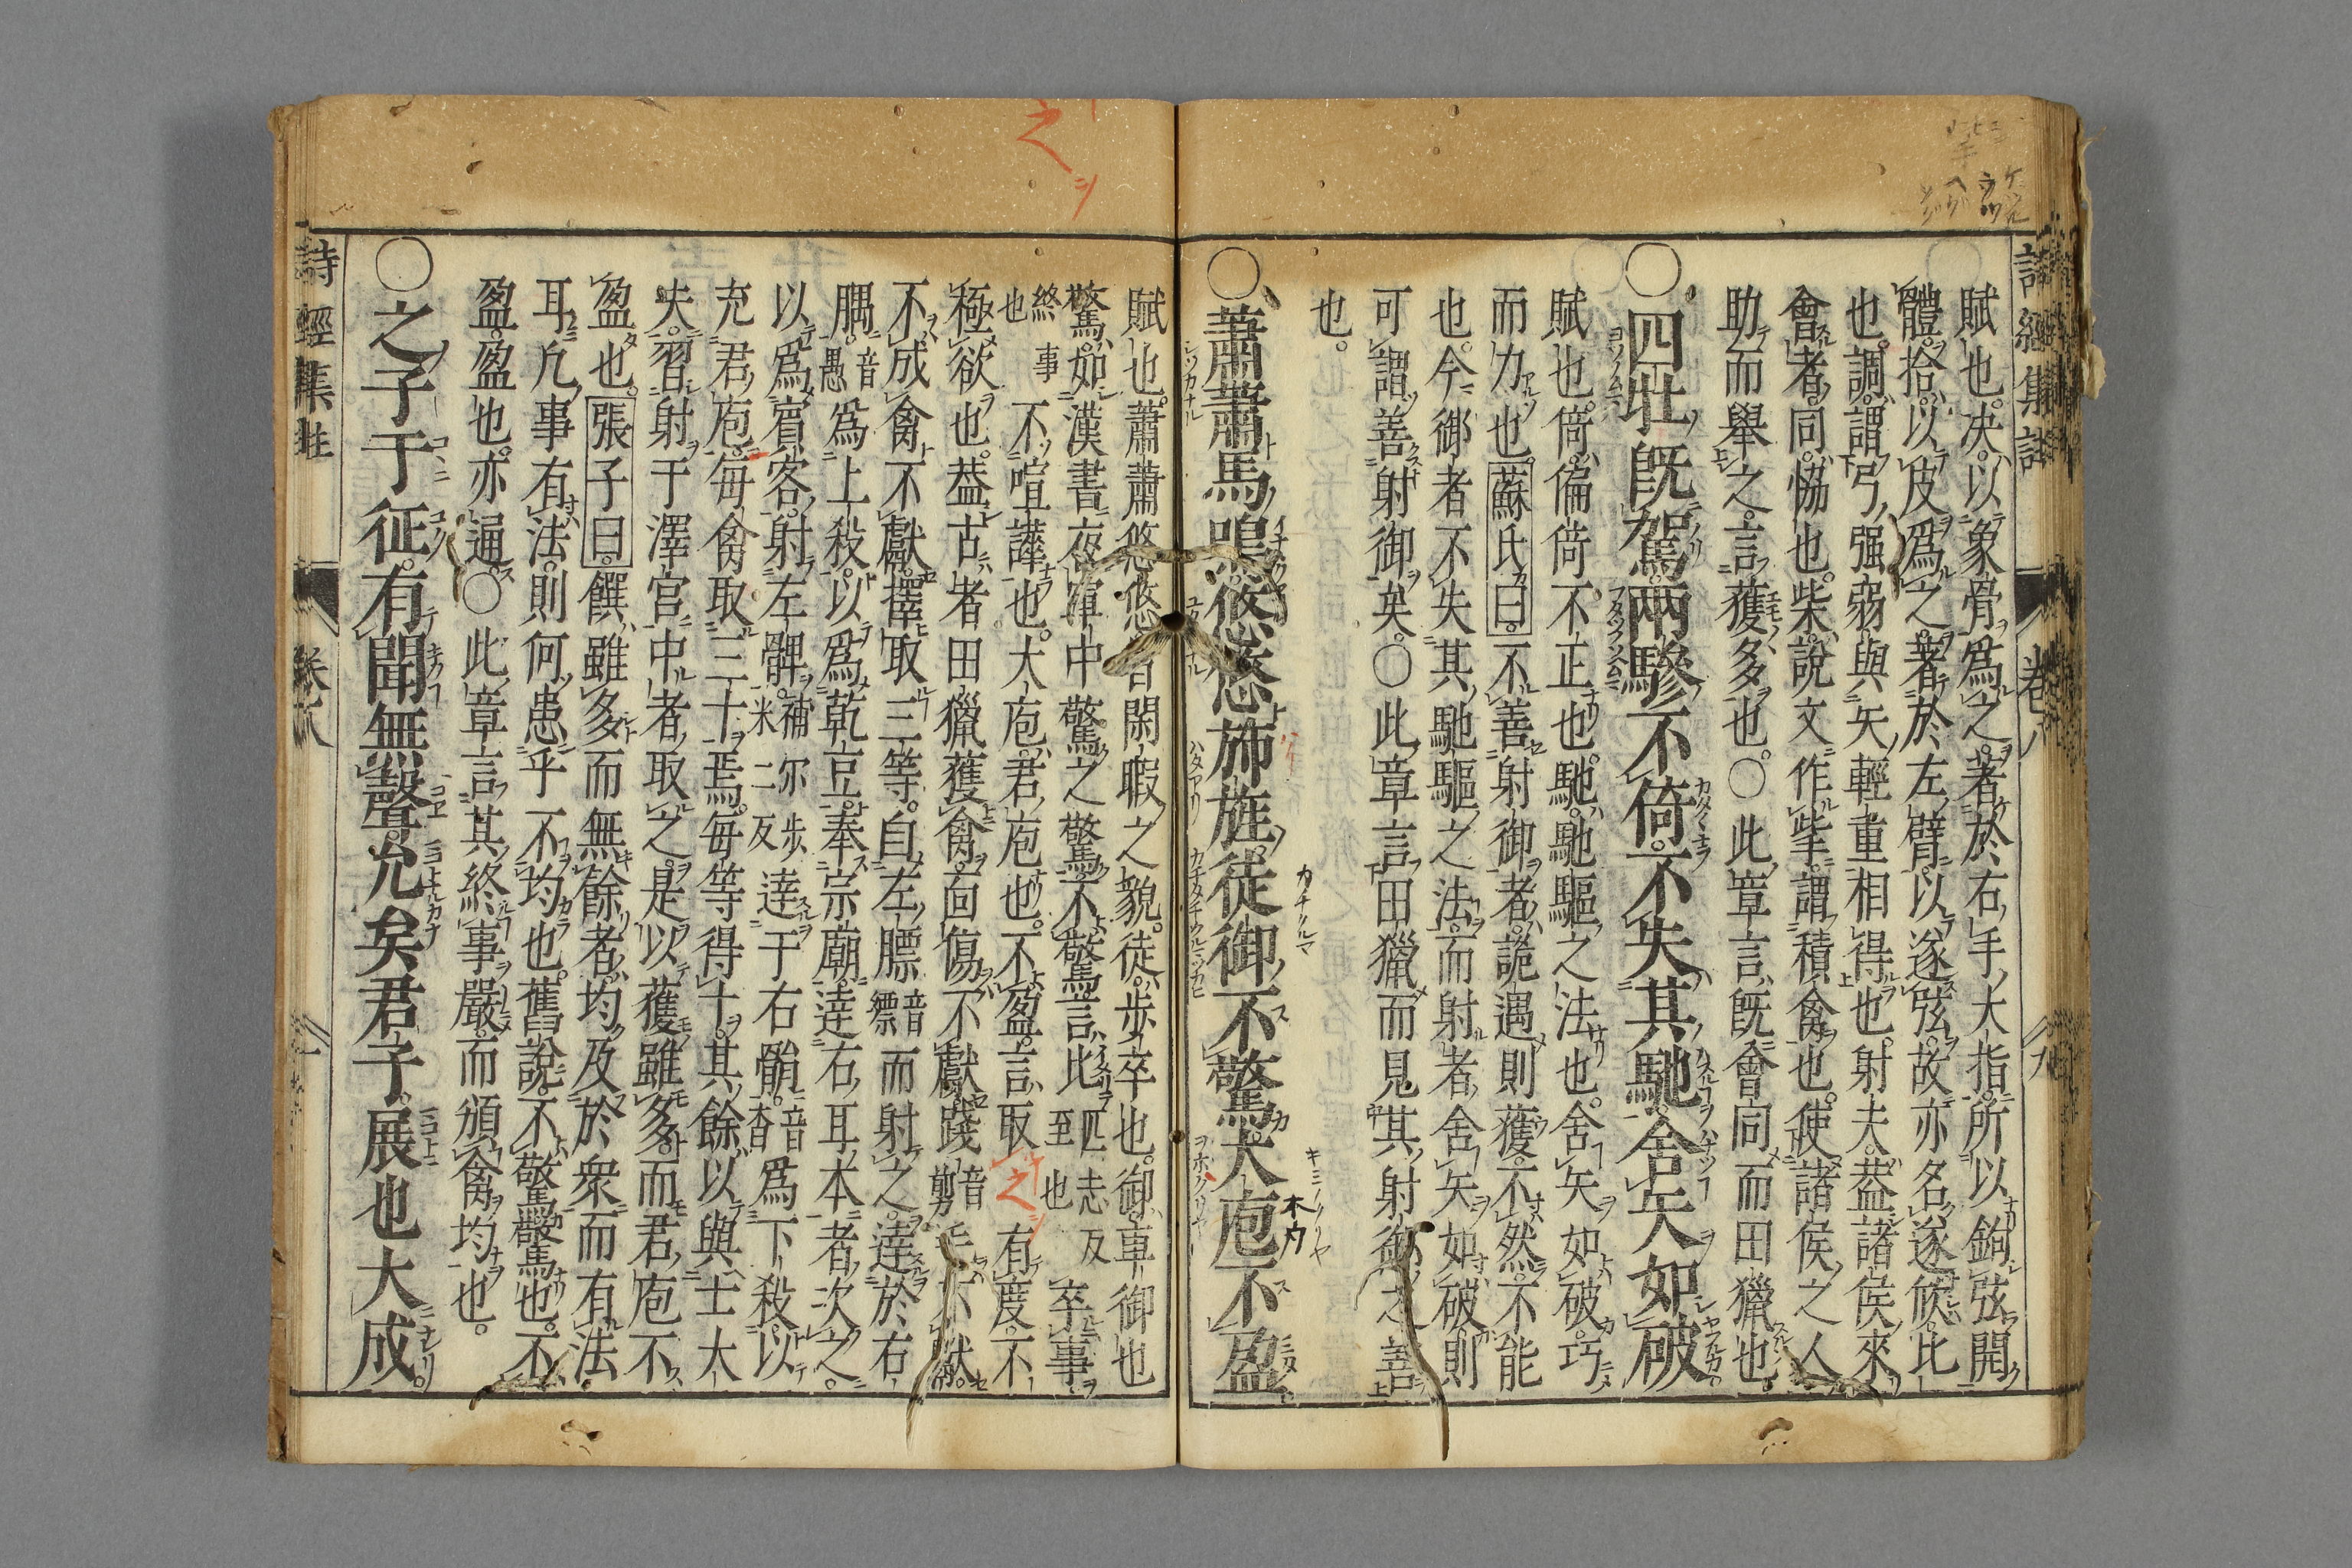 詩經集註 卷八 九
賦也。決。以象骨爲之。著於右手大指。所以鉤弦開
體。拾。以皮爲之。著於左臂。以遂弦。故亦名遂。佽。比
也。調。謂弓强弱與矢輕重相得也。射夫。蓋諸侯來
會者。同。恊也。柴。說文作㧘。謂積禽也。使諸侯之人
助而舉之。言獲多也。○此章言既會同而田獵也。
○四牡既駕。兩驂不倚。不失其馳。舍矢如破。
賦也。倚。偏倚不正也。馳。馳驅之法也。舍矢如破。巧
而力也。蘇氏曰。不善射御者。詭遇則獲。不然不能
也。今御者不失其馳驅之法。而射者舍矢如破。則
可謂善射御矣。○此章言田獵而見其射御之善
也。
○蕭蕭馬鳴。悠悠斾旌。徒御不驚。大庖不盈。
賦也。蕭蕭悠悠皆閑暇之貌。徒。步卒也。御。車御也
驚。如漢書夜軍中驚之驚。不驚。言比匹志反至也卒事
終事也不喧譁也。大庖。君庖也。不盈。言取之有度。不
極欲也。蓋古者田獵獲禽。面傷不獻。踐音剪毛不獻。
不成禽不獻。擇取三等。自左膘音縹而射之。達於右
腢音愚爲上殺。以爲乾豆。奉宗廟。達右耳本者次之。
以爲賓客。射左髀補尔步米二反達于右䯚音杳爲下殺。以
充君庖。每禽取三十焉。每等得十。其餘以與士大
夫。習射于澤宮中者取之。是以獲雖多。而君庖不
盈也。張子曰。饌雖多而無餘者。均及於衆而有法
耳。凢事有法。則何患乎不均也。舊說。不驚驚也。不
盈盈也。亦通。○此章言其終事嚴而頒禽均也。
○之子于征。有聞無聲。允矣君子。展也大成。
詩經集註 卷八